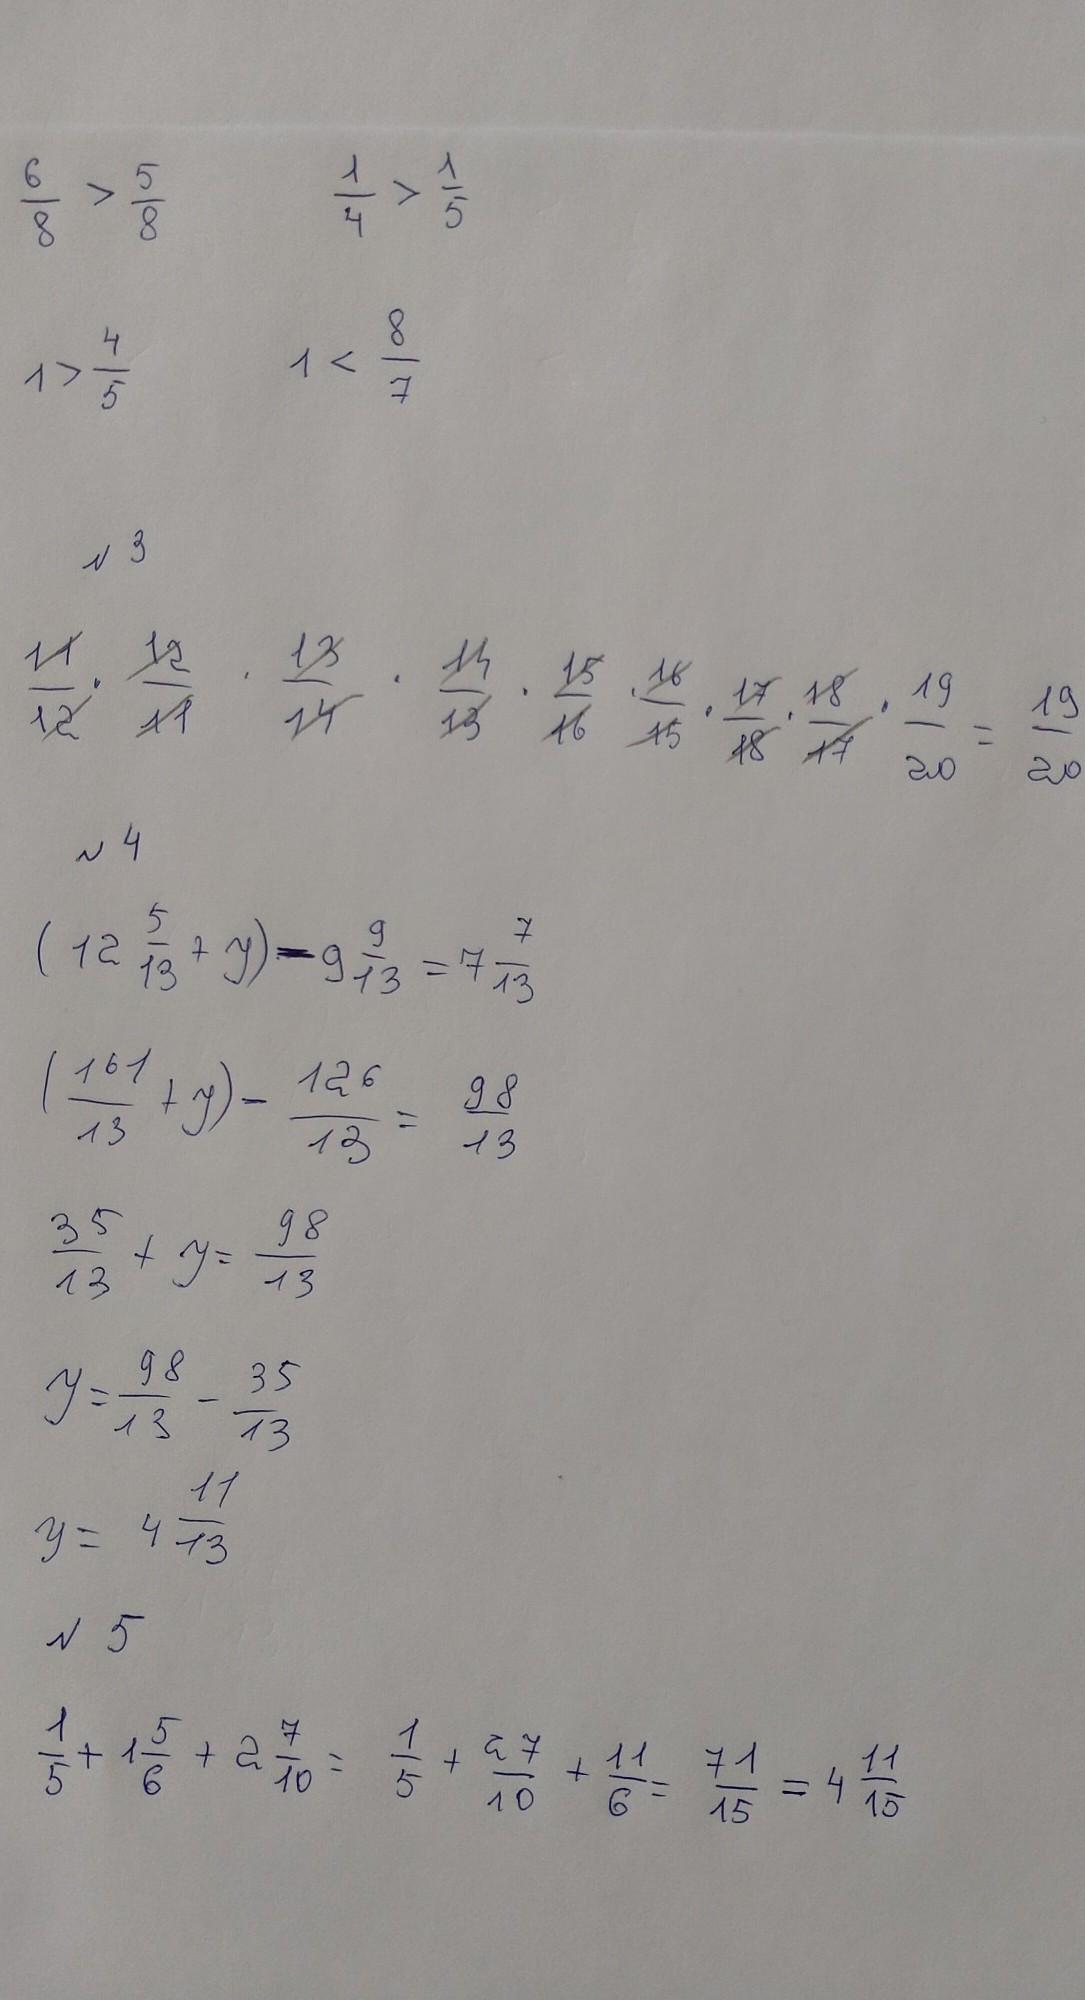 6/8 > 5/8 1/4 > 1/5
1 > 4/5 1 < 8/7
N 3
11/12 · 12/11 · 13/14 · 14/13 · 15/16 · 16/15 · 17/18 · 18/17 · 19/20 = 19/20
N 4
(12 5/13 + y) - 9 9/13 = 7 7/13
(161/13 + y) - 126/13 = 98/13
35/13 + y = 98/13
y = 98/13 - 35/13
y = 4 11/13
N 5
1/5 + 1 5/6 + 2 7/10 = 1/5 + 27/10 + 11/6 = 71/15 = 4 11/15